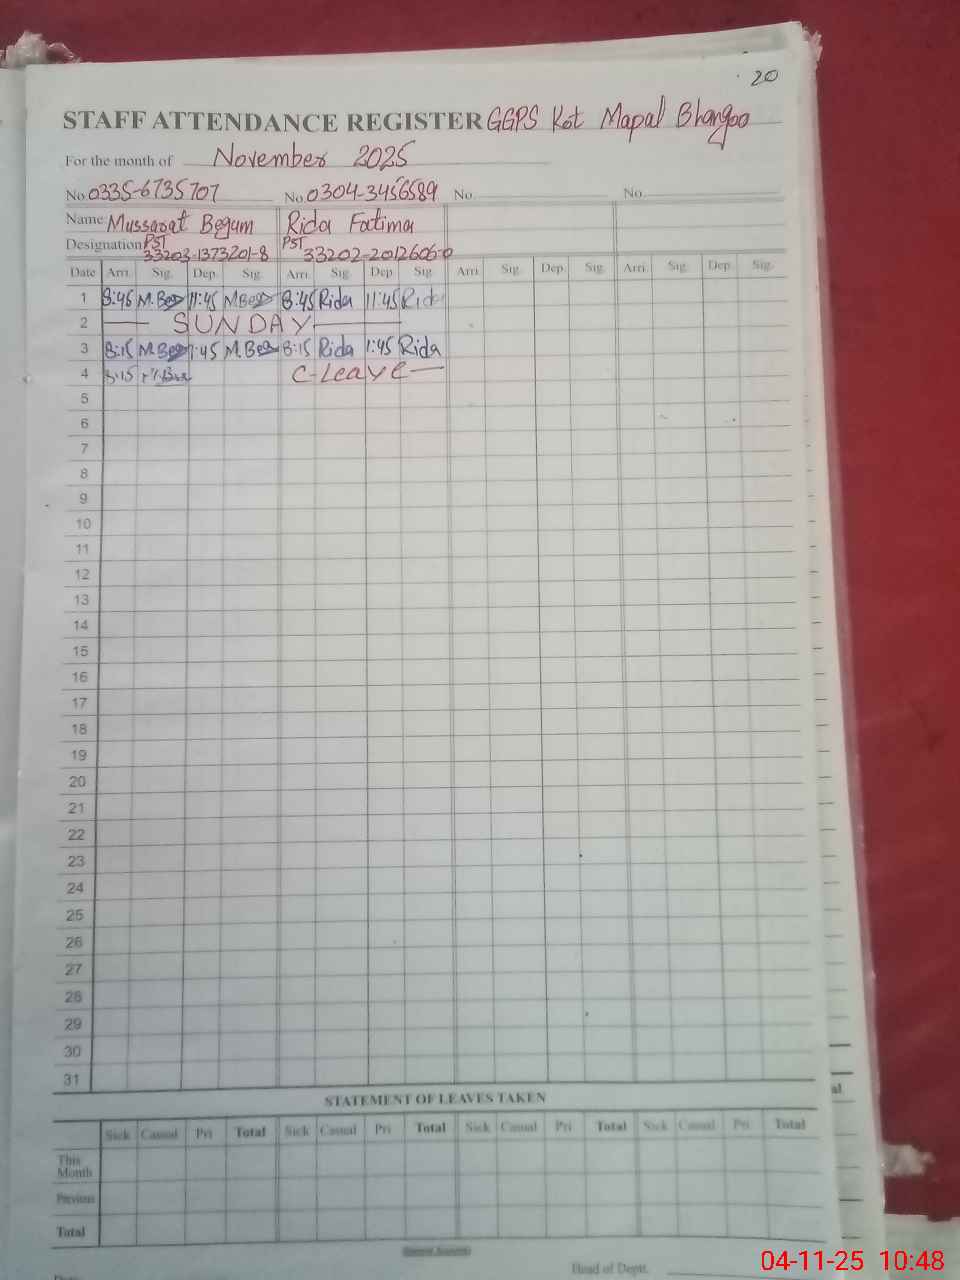 20
STAFF ATTENDANCE REGISTER GGPS Kot Mapal Bhangoo
For the month of November 2025
No. 0335-6735707 No. 0304-3456589 No. No.
Name: Mussarat Begum Rida Fatima
Designation PST 33203-1373201-8 PST 33202-2012606-0
Date Arri. Sig. Dep. Sig. Arri. Sig. Dep. Sig. Arri. Sig. Dep. Sig. Arri. Sig. Dep. Sig.
1 8:45 M.Beg 11:45 M Beg 8:45 Rida 11:45 Rida
2 SUNDAY
3 8:15 M.Beg 1:45 M.Beg 8:15 Rida 1:45 Rida
4 8:15 C-Leave
5
6
7
8
9
10
11
12
13
14
15
16
17
18
19
20
21
22
23
24
25
26
27
28
29
30
31
STATEMENT OF LEAVES TAKEN
Sick Casual Pri Total Sick Casual Pri Total Sick Casual Pri Total Sick Casual Pri Total
This Month
Previous
Total
Head of Deptt.
04-11-25 10:48